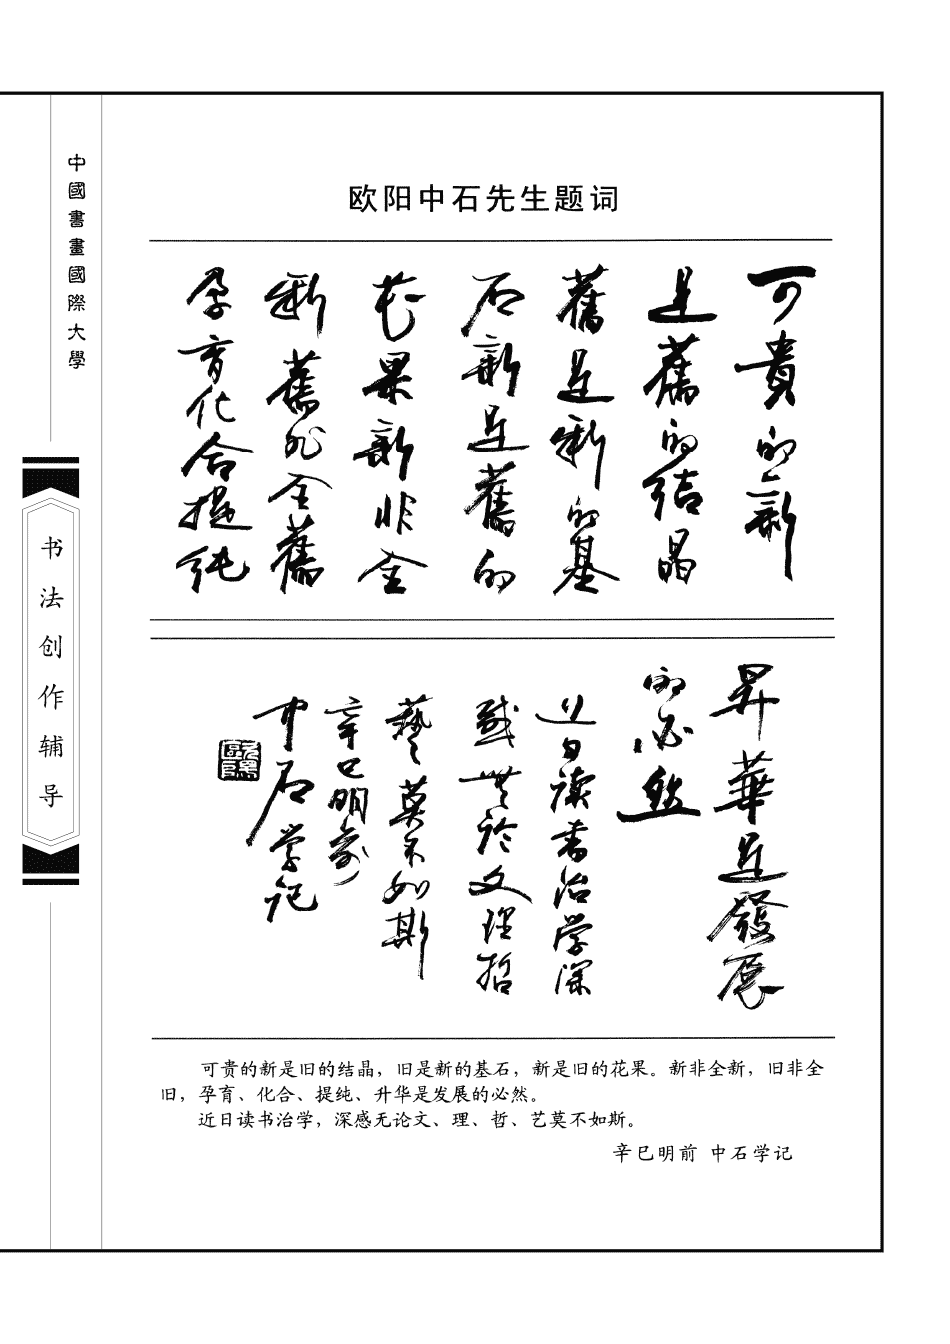 中國書畫國際大學
书法创作辅导
欧阳中石先生题词
可貴的新
是舊的结晶
舊是新的基
石新是舊的
花果新非全
新舊非全舊
孕育化合提纯
昇華是發展
的必然
近日读书治学深
感無论文理哲
藝莫不如斯
辛巳明前
中石学记
可贵的新是旧的结晶，旧是新的基石，新是旧的花果。新非全新，旧非全
旧，孕育、化合、提纯、升华是发展的必然。
近日读书治学，深感无论文、理、哲、艺莫不如斯。
辛巳明前 中石学记